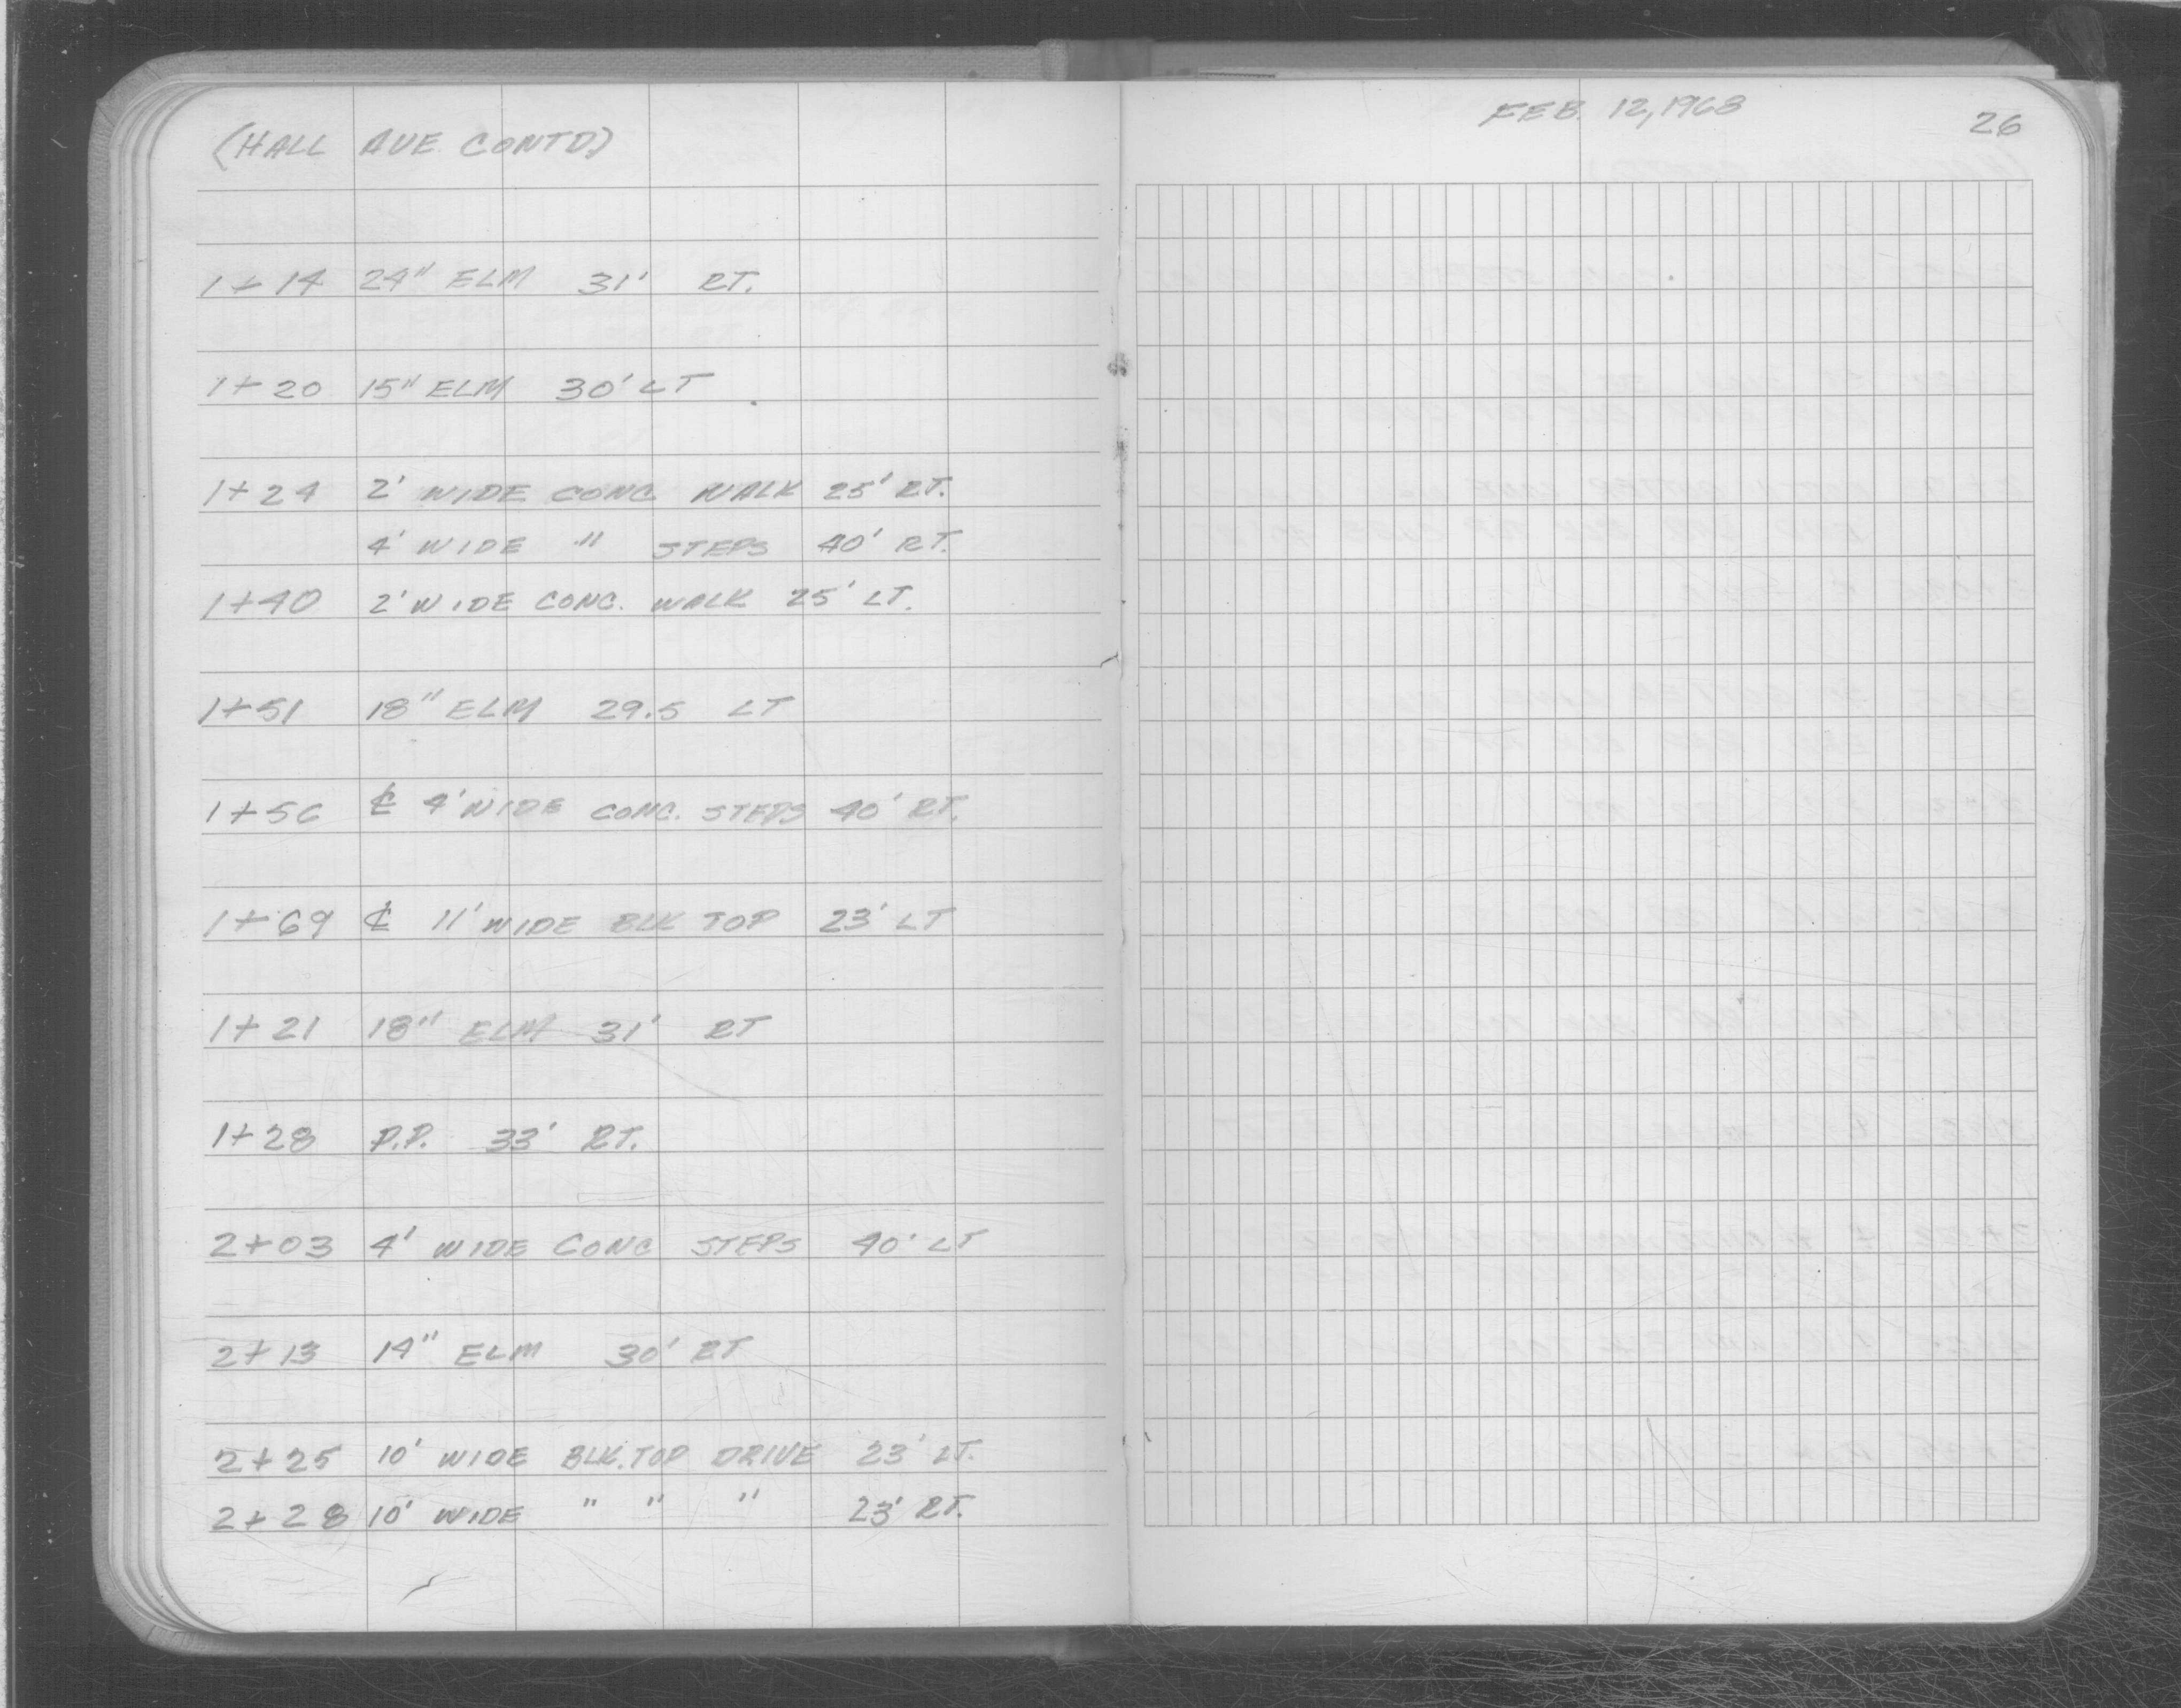 (HALL AVE. CONTD)
FEB. 12, 1968
26
1+14 24" ELM 31' RT.
1+20 15" ELM 30' LT
1+24 2' WIDE CONC WALK 25' RT.
4' WIDE " STEPS 40' RT.
1+40 2' WIDE CONC. WALK 25' LT.
1+51 18" ELM 29.5 LT
1+56 ℄ 4' WIDE CONC. STEPS 40' RT.
1+69 ℄ 11' WIDE BLK TOP 23' LT
1+21 18" ELM 31' RT
1+28 P.P. 33' RT.
2+03 4' WIDE CONC STEPS 40' LT
2+13 14" ELM 30' RT
2+25 10' WIDE BLK.TOP DRIVE 23' LT.
2+28 10' WIDE " " " 23' RT.